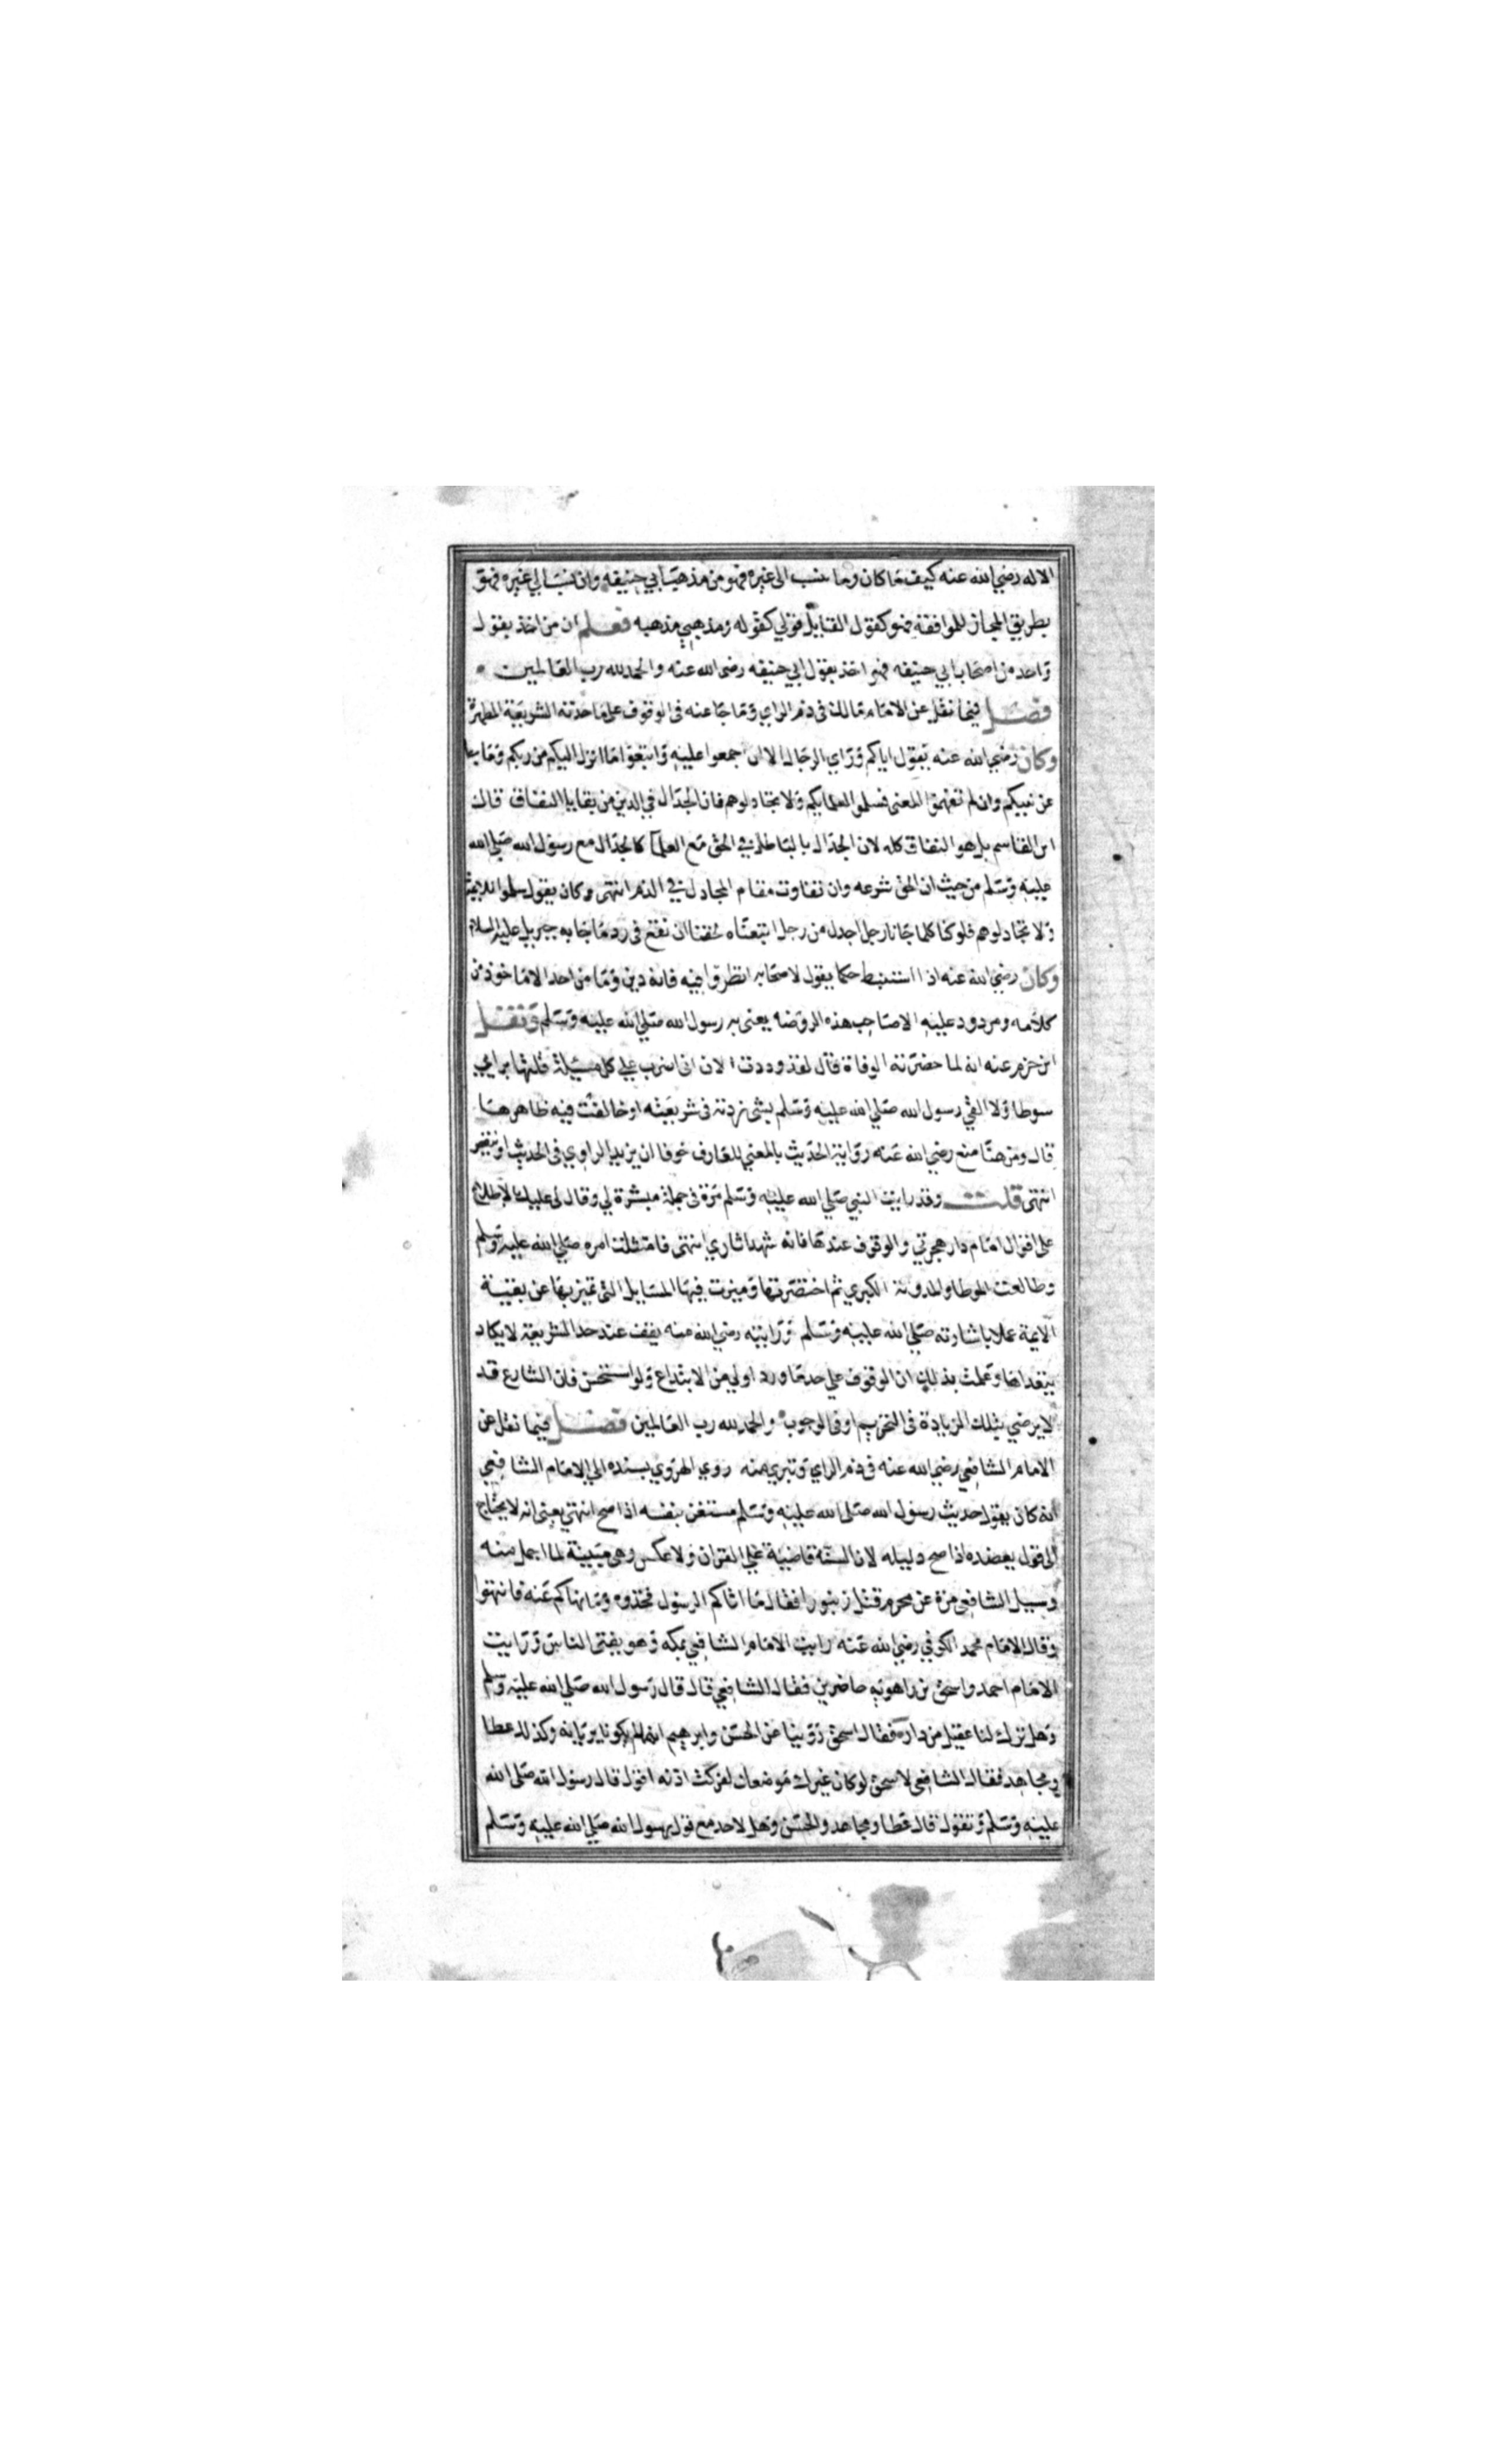 الا له رضي الله عنه كيف ما كان وما نسب الى غيره فهو من مذهب ابي حنيفه وان نسب الي غيره فهو
بطريق المجاز للموافقة فهو كقول القايل قولي كقوله ومذهبي مذهبه فعلم ان من اخذ بقول
واحد من اصحاب ابي حنيفه فهو اخذ بقول ابي حنيفه رضي الله عنه والحمد لله رب العالمين
فصل فيما نقل عن الامام مالك في ذم الراي وما جا عنه في الوقوف على ما حدته الشريعة المطهرة
وكان رضي الله عنه يقول اياكم وراي الرجال الا ان اجمعوا عليه واتبعوا ما انزل اليكم من ربكم وما جا
عن نبيكم وان لم تفهموا المعنى فسلموا لعلمايكم ولا تجادلوهم فان الجدال في الدين من بقايا النفاق قال
ابن القاسم بل هو النفاق كله لان الجدال بالباطل في الحق مع العلما كالجدال مع رسول الله صلي الله
عليه وسلم من حيث ان الحق شرعه وان تفاوت مقام المجادل في الذم انتهى وكان يقول سلموا للايمة
ولا تجادلوهم فلو كنا كلما جانا رجل اجدل من رجل اتبعناه لخفنا ان نقع في رد ما جا به جبريل عليه السلام
وكان رضي الله عنه اذا استنبط حكما يقول لاصحابه انظروا فيه فانه دين وما من احد الا ماخوذ من
كلامه ومردود عليه الا صاحب هذه الروضه يعني به رسول الله صلي الله عليه وسلم ونقل
ابن حزم عنه انه لما حضرته الوفاة قال لقد وددت الان اني اضرب علي كل مسيلة قلتها برايي
سوطا ولا القي رسول الله صلي الله عليه وسلم بشي زدته في شريعته او خالفت فيه ظاهرها
قال ومن هنا منع رضي الله عنه رواية الحديث بالمعني للعارف خوفا ان يزيد الراوي في الحديث او ينقص
انتهى قلت وقد رايت النبي صلي الله عليه وسلم مرة في جملة مبشرة لي وقال لي عليك بالاطلاع
على اقوال امام دار هجرتي والوقوف عندها فانه شهد اثاري انتهى فامتثلت امره صلي الله عليه وسلم
وطالعت الموطا والمدونة الكبري ثم اختصرتها وميزت فيها المسايل التي تميز بها عن بقية
الايمة عملا باشارته صلي الله عليه وسلم ورايته رضي الله عنه يقف عند حد الشريعة لا يكاد
يتعداها وعلمت بذلك ان الوقوف علي حد ما ورد اولي من الابتداع ولو استحسن فان الشارع قد
لا يرضي بتلك الزيادة في التحريم او في الوجوب والحمد لله رب العالمين فصل فيما نقل عن
الامام الشافعي رضي الله عنه في ذم الراي وتبريه منه روي الهروي بسنده الي الامام الشافعي
انه كان يقول حديث رسول الله صلي الله عليه وسلم مستغن بنفسه اذا صح انتهي يعني انه لا يحتاج
الي قول يعضده اذا صح دليله لان السنة قاضية علي القران ولا عكس وهي مبينة لما اجمل منه
وسيل الشافعي مرة عن محرم قتل زنبورا فقال ما اتاكم الرسول فخذوه وما نهاكم عنه فانتهوا
وقال الامام محمد الكوفي رضي الله عنه رايت الامام الشافعي بمكه وهو يفتي الناس ورايت
الامام احمد واسحق بن راهويه حاضرين فقال الشافعي قال قال رسول الله صلي الله عليه وسلم
وهل ترك لنا عقيل من دار فقال اسحق روينا عن الحسن وابرهيم انهما لم يكونا يريانه وكذلك عطا
ومجاهد فقال الشافعي لاسحق لو كان غيرك موضعك لفركت اذنه اقول قال رسول الله صلي الله
عليه وسلم وتقول قال عطا ومجاهد والحسن وهل لاحد مع قول رسول الله صلي الله عليه وسلم